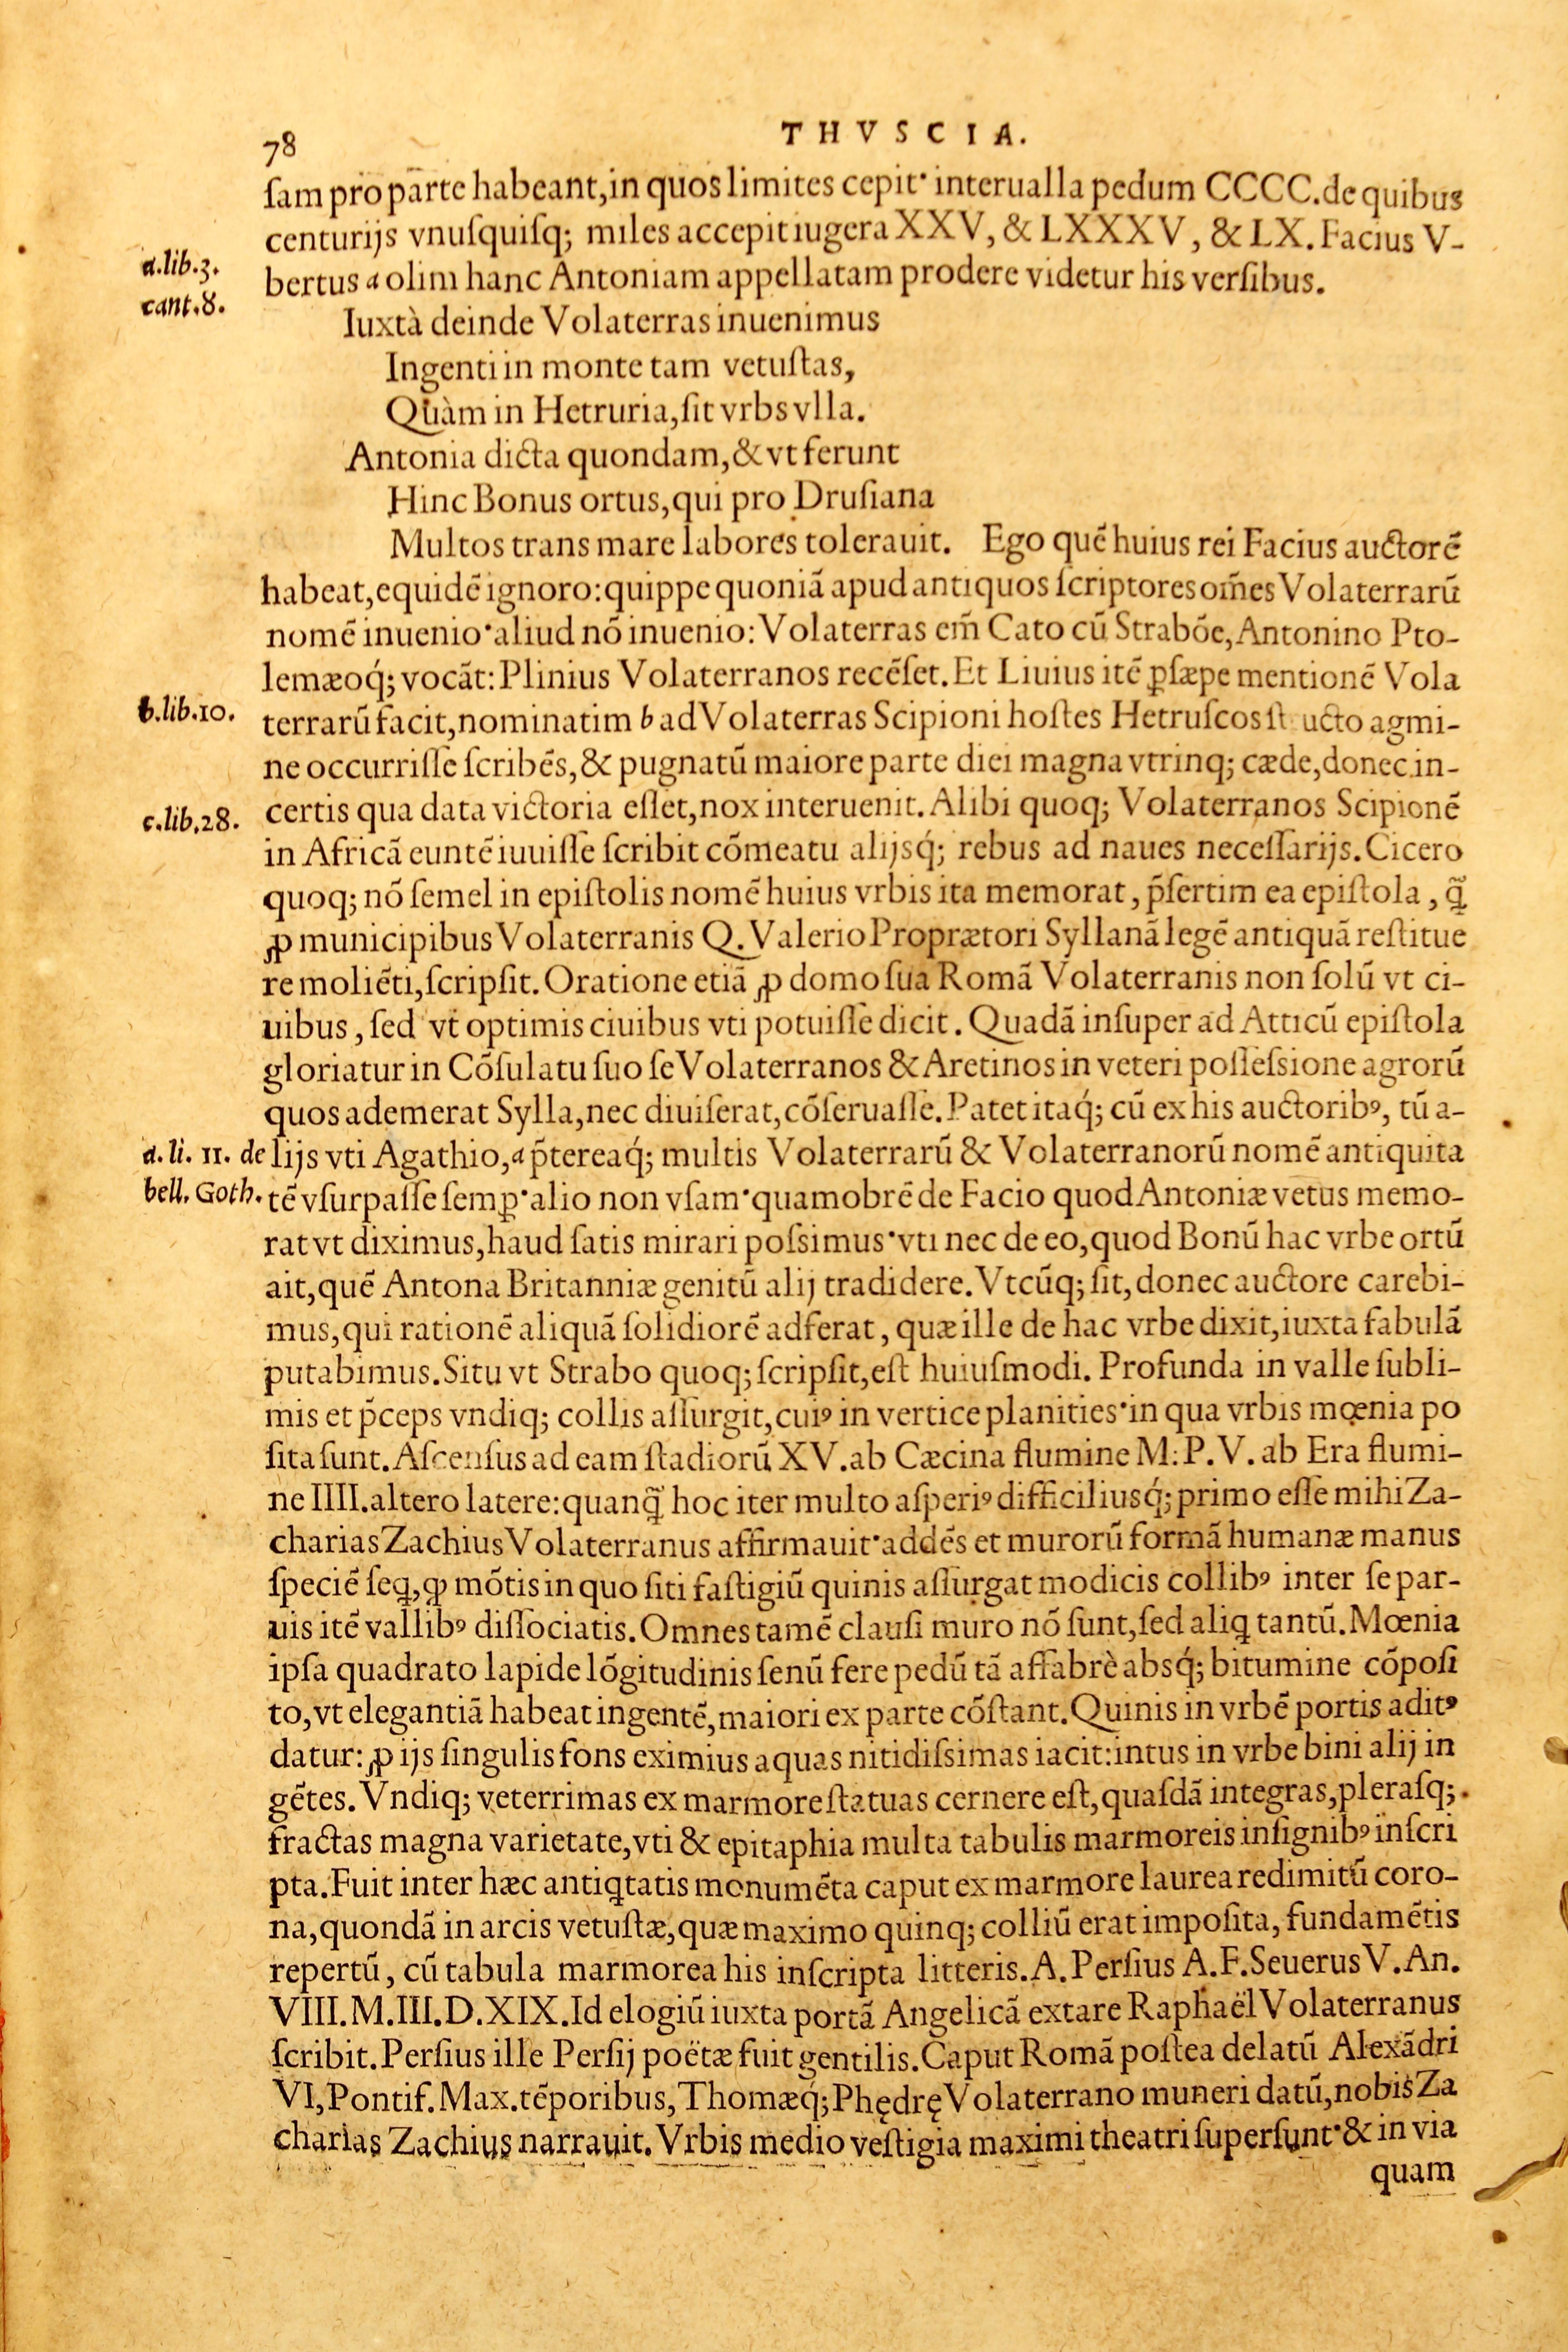 78
THVSCIA.
ſam pro parte habeant,in quos limites cepit· interualla pedum CCCC.de quibus
centurijs vnuſquiſq; miles accepit iugera XXV, & LXXXV, & LX. Facius V-
a.lib.3.
cant.8.
bertus a olim hanc Antoniam appellatam prodere videtur his verſibus.
Iuxtà deinde Volaterras inuenimus
Ingenti in monte tam vetuſtas,
Quàm in Hetruria,ſit vrbs vlla.
Antonia dicta quondam,& vt ferunt
Hinc Bonus ortus,qui pro Druſiana
Multos trans mare labores tolerauit. Ego quẽ huius rei Facius auctorẽ
habeat,equidẽ ignoro:quippe quoniã apud antiquos ſcriptores om̃es Volaterrarũ
nomẽ inuenio·aliud nõ inuenio:Volaterras em̃ Cato cũ Strabõe,Antonino Pto-
lemæoq́; vocãt:Plinius Volaterranos recẽſet.Et Liuius itẽ ꝑſæpe mentionẽ Vola
b.lib.10.
terrarũ facit,nominatim b ad Volaterras Scipioni hoſtes Hetruſcos ucto agmi-
ne occurriſſe ſcribẽs,& pugnatũ maiore parte diei magna vtrinq; cæde,donec in-
c.lib.28.
certis qua data victoria eſſet,nox interuenit.Alibi quoq; Volaterranos Scipionẽ
in Africã euntẽ iuuiſſe ſcribit cõmeatu alijsq́; rebus ad naues neceſſarijs.Cicero
quoq; nõ ſemel in epiſtolis nomẽ huius vrbis ita memorat, p̃ſertim ea epiſtola, q̃
ꝓ municipibus Volaterranis Q.Valerio Proprætori Syllanã legẽ antiquã reſtitue
re moliẽti,ſcripſit.Oratione etiã ꝓ domo ſua Romã Volaterranis non ſolũ vt ci-
uibus, ſed vt optimis ciuibus vti potuiſſe dicit. Quadã inſuper ad Atticũ epiſtola
gloriatur in Cõſulatu ſuo ſe Volaterranos & Aretinos in veteri poſſeſsione agrorũ
quos ademerat Sylla,nec diuiſerat,cõſeruaſſe.Patet itaq́; cũ ex his auctoribꝰ, tũ a-
a.li. 11. de
bell. Goth.
lijs vti Agathio,a p̃tereaq́; multis Volaterrarũ & Volaterranorũ nomẽ antiquita
tẽ vſurpaſſe ſemꝑ·alio non vſam·quamobrẽ de Facio quod Antoniæ vetus memo-
rat vt diximus,haud ſatis mirari poſsimus·vti nec de eo,quod Bonũ hac vrbe ortũ
ait,quẽ Antona Britanniæ genitũ alij tradidere.Vtcũq; ſit,donec auctore carebi-
mus,qui rationẽ aliquã ſolidiorẽ adferat, quæ ille de hac vrbe dixit,iuxta fabulã
putabimus.Situ vt Strabo quoq; ſcripſit,eſt huiuſmodi. Profunda in valle ſubli-
mis et p̃ceps vndiq; collis aſſurgit,cuiꝰ in vertice planities·in qua vrbis mœnia po
ſita ſunt.Aſcenſus ad eam ſtadiorũ XV.ab Cæcina flumine M:P.V. ab Era flumi-
ne IIII.altero latere:quanq̃ hoc iter multo aſperiꝰ difficiliusq́; primo eſſe mihi Za-
charias Zachius Volaterranus affirmauit·addẽs et murorũ formã humanæ manus
ſpeciẽ ſeq,ꝙ mõtis in quo ſiti faſtigiũ quinis aſſurgat modicis collibꝰ inter ſe par-
uis itẽ vallibꝰ diſſociatis.Omnes tamẽ clauſi muro nõ ſunt,ſed aliq tantũ.Mœnia
ipſa quadrato lapide lõgitudinis ſenũ fere pedũ tã affabrè absq́; bitumine cõpoſi
to,vt elegantiã habeat ingentẽ,maiori ex parte cõſtant.Quinis in vrbẽ portis aditꝰ
datur:ꝓ ijs ſingulis fons eximius aquas nitidiſsimas iacit:intus in vrbe bini alij in
gẽtes. Vndiq; veterrimas ex marmore ſtatuas cernere eſt,quaſdã integras,pleraſq;
fractas magna varietate,vti & epitaphia multa tabulis marmoreis inſignibꝰ inſcri
pta.Fuit inter hæc antiqtatis monumẽta caput ex marmore laurea redimitũ coro-
na,quondã in arcis vetuſtæ,quæ maximo quinq; colliũ erat impoſita, fundamẽtis
repertũ, cũ tabula marmorea his inſcripta litteris.A.Perſius A.F.Seuerus V.An.
VIII.M.III.D.XIX.Id elogiũ iuxta portã Angelicã extare Raphaël Volaterranus
ſcribit.Perſius ille Perſij poëtæ fuit gentilis.Caput Romã poſtea delatũ Alexãdri
VI,Pontif.Max.tẽporibus, Thomæq́; Phędrę Volaterrano muneri datũ,nobis Za
charias Zachius narrauit. Vrbis medio veſtigia maximi theatri ſuperſunt·& in via
quam